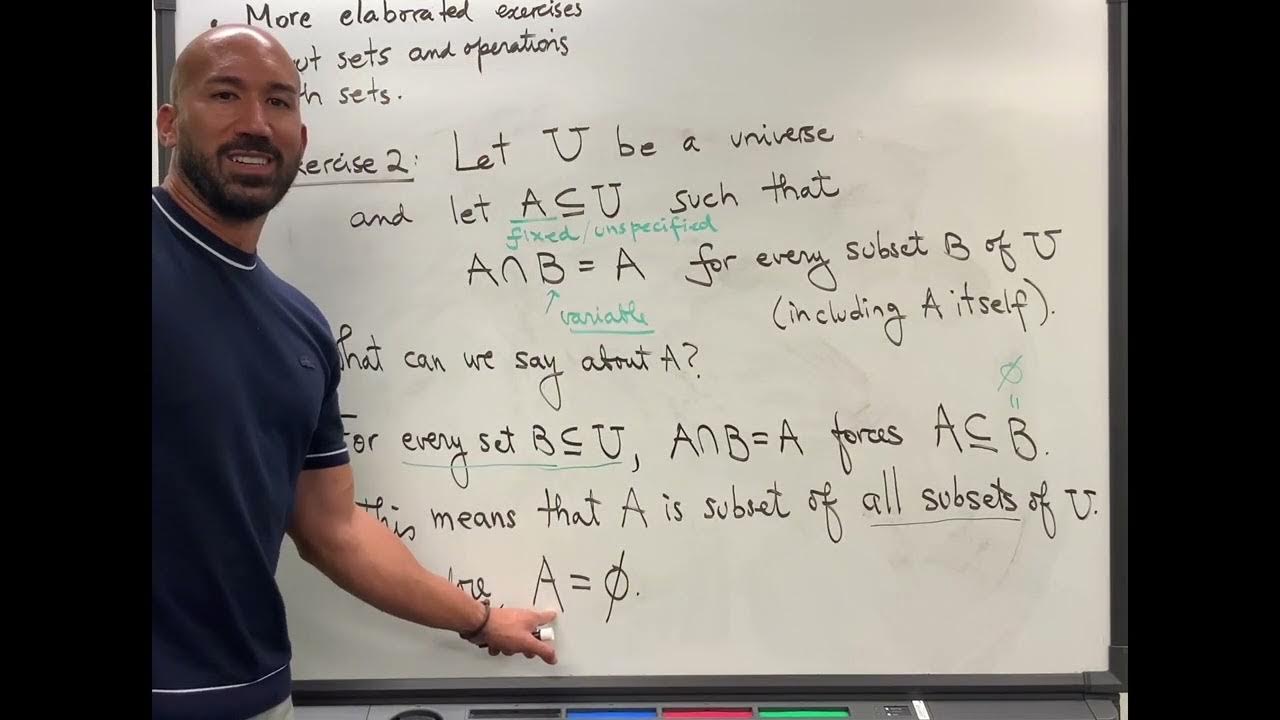 • More elaborated exercises
sets and operations
sets.
Exercise 2: Let U be a universe
and let A ⊆ U such that
fixed/unspecified
A ∩ B = A for every subset B of U
↑ variable
(including A itself).
What can we say about A?
∅
"
For every set B ⊆ U, A∩B = A forces A ⊆ B.
this means that A is subset of all subsets of U.
A = ∅.